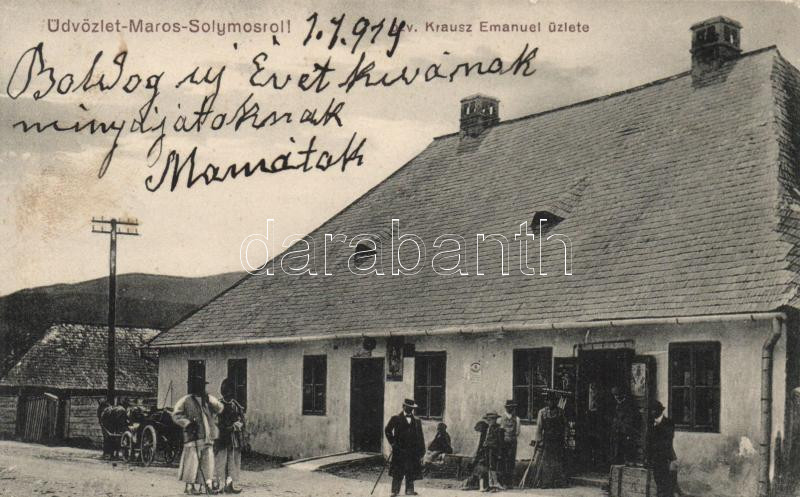 Üdvözlet-Maros-Solymosról! 1./1.914 Özv. Krausz Emanuel üzlete
Boldog új Évet kivánok
minyájatoknak
Mamátok
darabanth.com